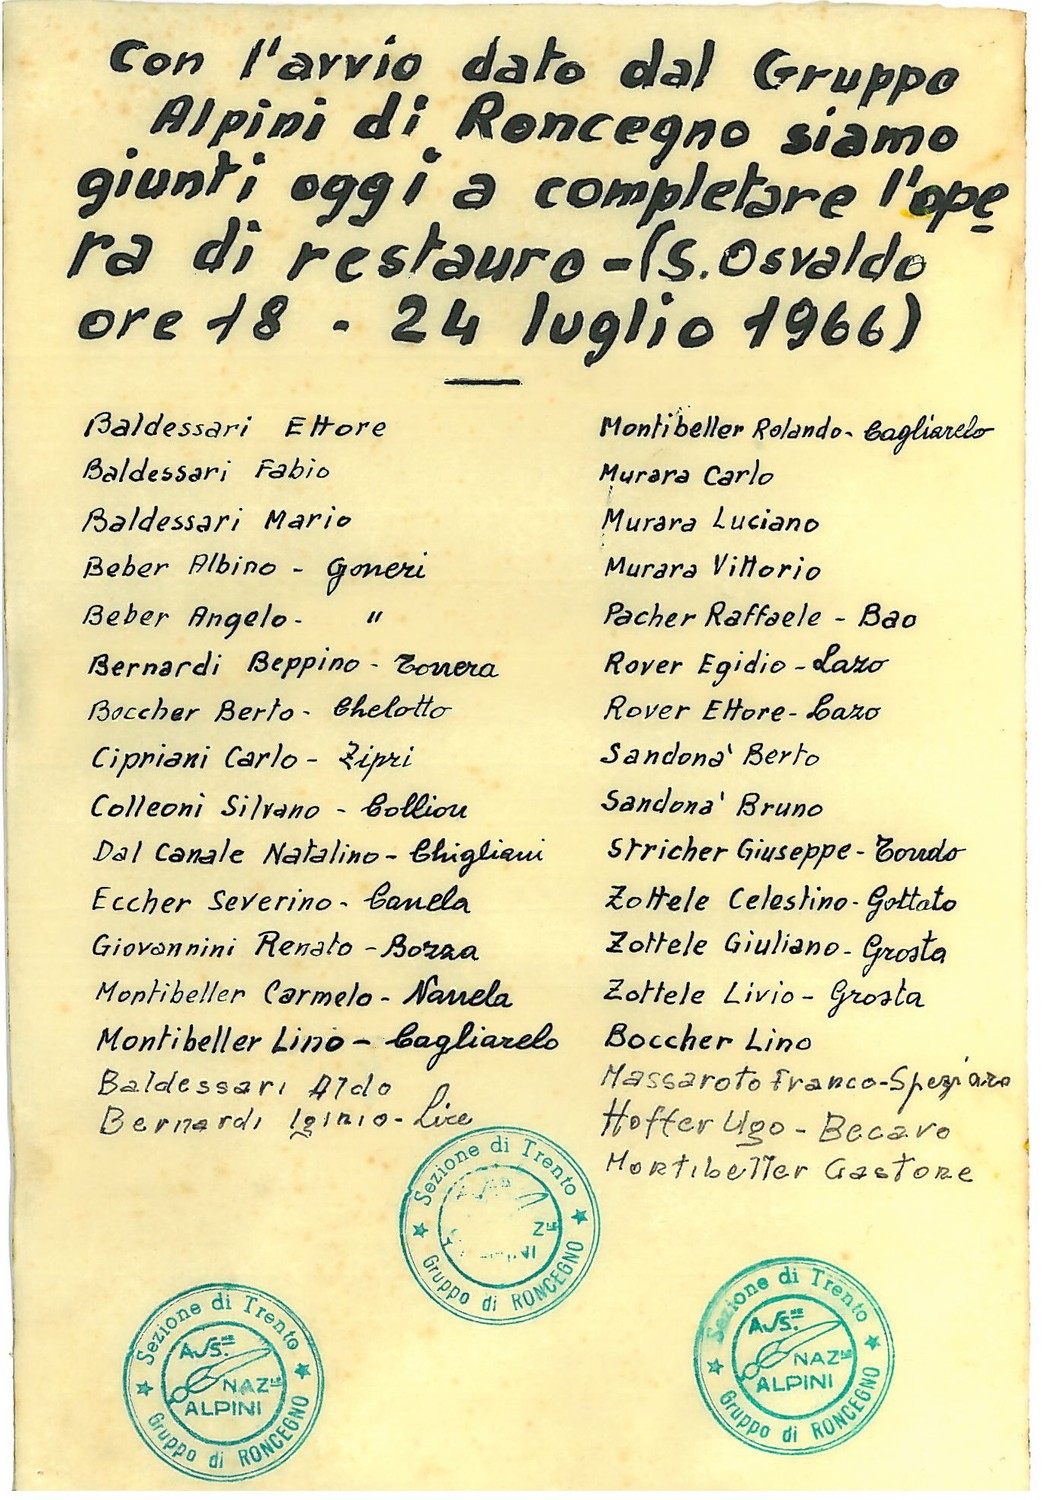 Con l'avvio dato dal Gruppo
Alpini di Roncegno siamo
giunti oggi a completare l'ope
ra di restauro - (S. Osvaldo
ore 18 - 24 luglio 1966)
Baldessari Ettore
Baldessari Fabio
Baldessari Mario
Beber Albino - Goneri
Beber Angelo - "
Bernardi Beppino - Tonera
Boccher Berto - Chelotto
Cipriani Carlo - Zipri
Colleoni Silvano - Collion
Dal Canale Natalino - Chigliani
Eccher Severino - Canela
Giovannini Renato - Bozza
Montibeller Carmelo - Nanela
Montibeller Lino - Cagliarelo
Baldessari Aldo
Bernardi Iginio - Lice
Montibeller Rolando - Cagliarelo
Murara Carlo
Murara Luciano
Murara Vittorio
Pacher Raffaele - Bao
Rover Egidio - Lazo
Rover Ettore - Lazo
Sandona' Berto
Sandona' Bruno
Stricher Giuseppe - Tondo
Zottele Celestino - Gottato
Zottele Giuliano - Grosta
Zottele Livio - Grosta
Boccher Lino
Massaroto Franco - Speziaro
Hoffer Ugo - Becaro
Montibeller Gastone
Sezione di Trento
Gruppo di RONCEGNO
Sezione di Trento
ASS.NE
NAZ.LE
ALPINI
Gruppo di RONCEGNO
Sezione di Trento
ASS.NE
NAZ.LE
ALPINI
Gruppo di RONCEGNO